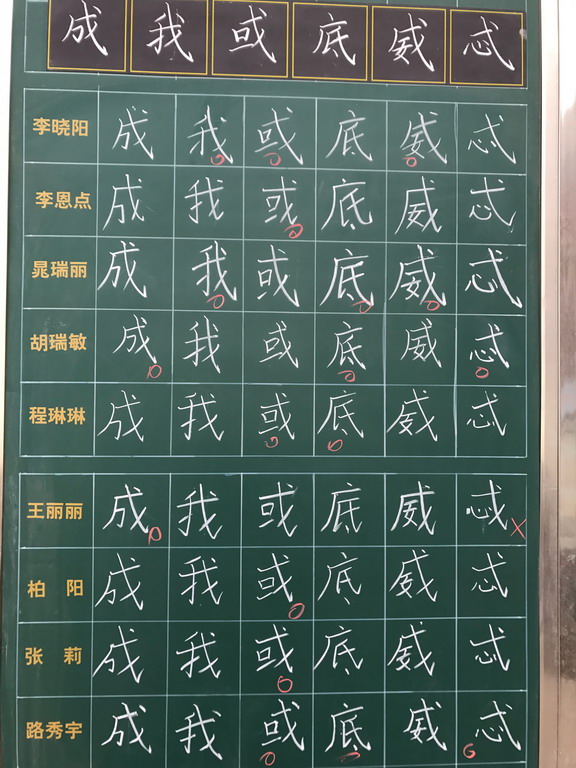 成 我 或 底 威 忒
李晓阳 成 我 或 底 威 忒
李恩点 成 我 或 底 威 忒
晁瑞丽 成 我 或 底 威 忒
胡瑞敏 成 我 或 底 威 忒
程琳琳 成 我 或 底 威 忒
王丽丽 成 我 或 底 威
柏 阳 成 我 或 底 威 忒
张 莉 成 我 或 底 威 忒
路秀宇 成 我 或 底 威 忒